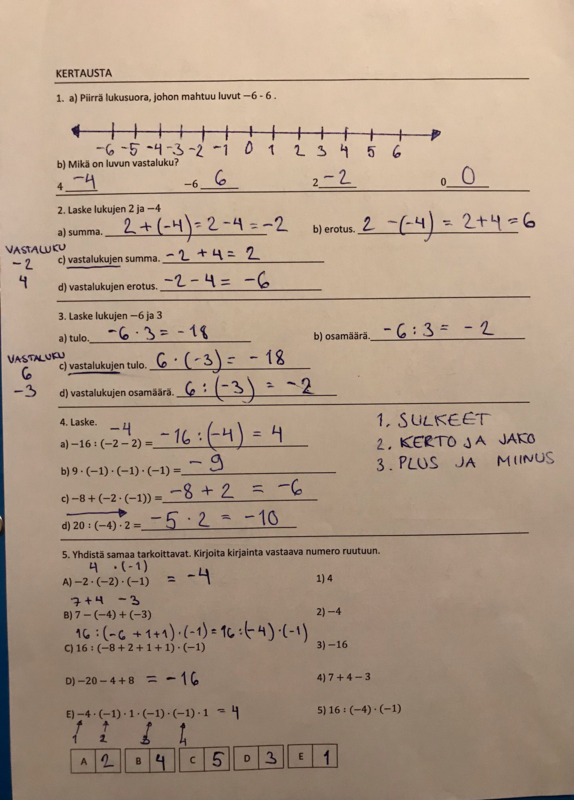 KERTAUSTA
1. a) Piirrä lukusuora, johon mahtuu luvut −6 - 6 .
-6 -5 -4 -3 -2 -1 0 1 2 3 4 5 6
b) Mikä on luvun vastaluku?
4 -4 −6 6 2 -2 0 0
2. Laske lukujen 2 ja −4
a) summa. 2 + (-4) = 2 - 4 = -2 b) erotus. 2 - (-4) = 2 + 4 = 6
VASTALUKU
-2
4
c) vastalukujen summa. -2 + 4 = 2
d) vastalukujen erotus. -2 - 4 = -6
3. Laske lukujen −6 ja 3
a) tulo. -6 · 3 = -18 b) osamäärä. -6 : 3 = -2
VASTALUKU
6
-3
c) vastalukujen tulo. 6 · (-3) = -18
d) vastalukujen osamäärä. 6 : (-3) = -2
4. Laske.
-4
a) −16 : (−2 − 2) = -16 : (-4) = 4
b) 9 · (−1) · (−1) · (−1) = -9
c) −8 + (−2 · (−1)) = -8 + 2 = -6
d) 20 : (−4) · 2 = -5 · 2 = -10
1. SULKEET
2. KERTO JA JAKO
3. PLUS JA MIINUS
5. Yhdistä samaa tarkoittavat. Kirjoita kirjainta vastaava numero ruutuun.
4 · (-1)
A) −2 · (−2) · (−1) = -4 1) 4
7 + 4 - 3
B) 7 − (−4) + (−3) 2) −4
16 : (-6 + 1 + 1) · (-1) = 16 : (-4) · (-1)
C) 16 : (−8 + 2 + 1 + 1) · (−1) 3) −16
D) −20 − 4 + 8 = -16 4) 7 + 4 − 3
E) −4 · (−1) · 1 · (−1) · (−1) · 1 = 4 5) 16 : (−4) · (−1)
1 2 3 4
A 2 B 4 C 5 D 3 E 1